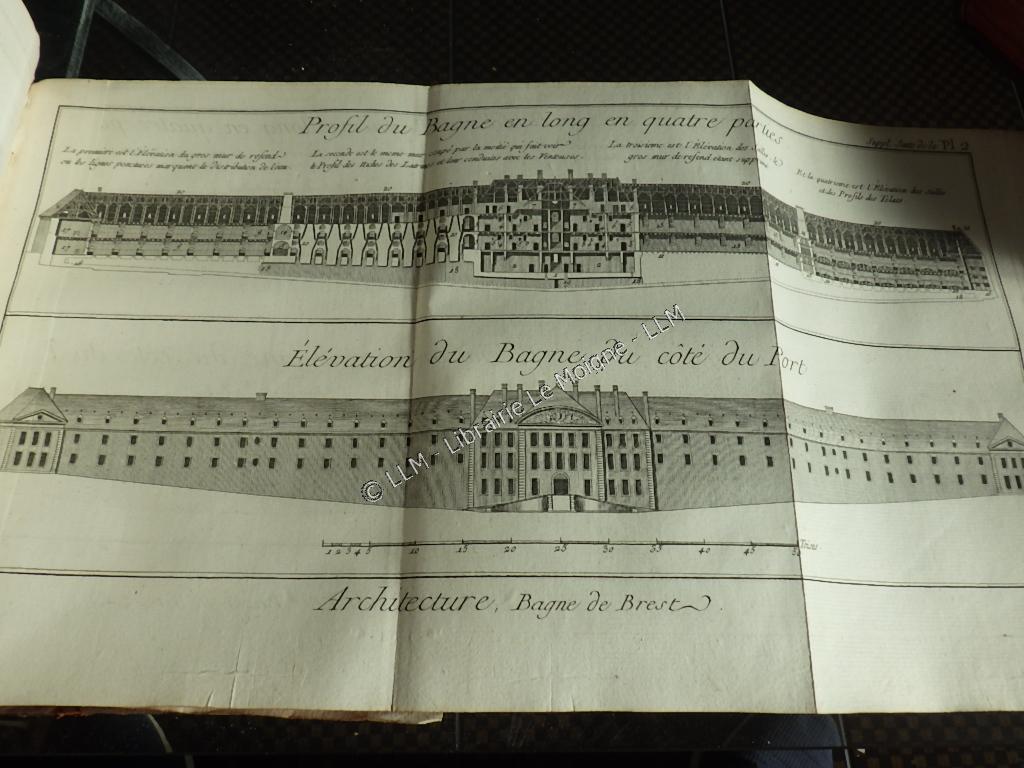 Suppl. Suite de la Pl. 2
Profil du Bagne en long en quatre parties.
La première est l'Élévation du gros mur de refend
où les lignes ponctuées marquent la distribution de l'eau
La seconde est le meme mur coupé par la moitié qui fait voir
le Profil des Niches des Latrines et leur conduites avec les Ventouses.
La troisieme est l'Élévation des Salles, le
gros mur de refend etant supprimé
Et la quatrieme est l'Élévation des Salles
et des Profils des Tolats
Élévation du Bagne du côté du Port
© LLM - Librairie Le Moigne - LLM
1 2 3 4 5 10 15 20 25 30 35 40 45 50 Toises.
Architecture, Bagne de Brest.